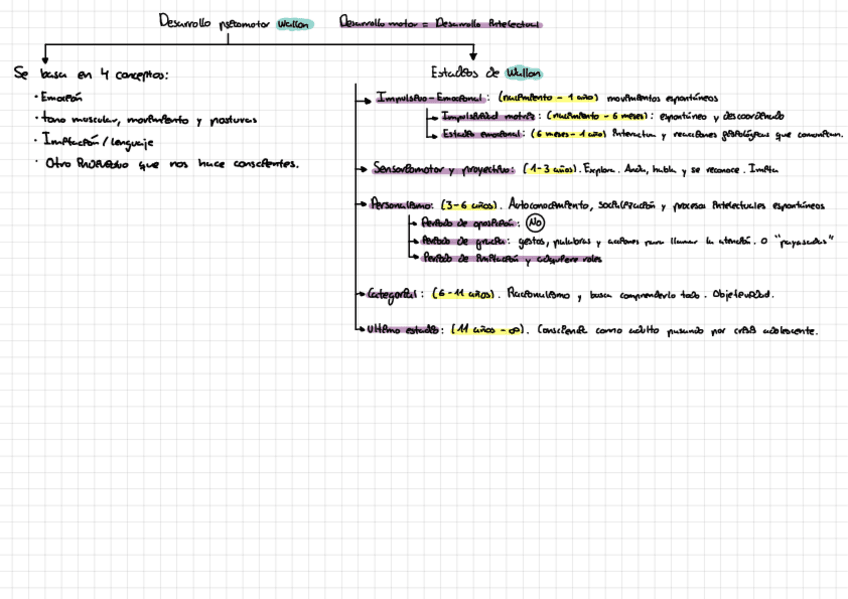 Desarrollo psicomotor Wallon Desarrollo motor = Desarrollo Intelectual
Se basa en 4 conceptos:
· Emoción
· tono muscular, movimiento y posturas
· Imitación / lenguaje
· Otro individuo que nos hace conscientes.
Estadios de Wallon
Impulsivo-Emocional: (nacimiento - 1 año) movimientos espontáneos
Impulsividad motriz: (nacimiento - 6 meses): espontáneo y descoordinado
Estadio emocional: (6 meses - 1 año) Interactua y reacciones fisiológicas que comunican.
Sensoriomotor y proyectivo: (1-3 años). Explora. Anda, habla y se reconoce. Imita
Personalismo: (3-6 años). Autoconocimiento, socialización y procesos intelectuales espontáneos
Período de oposición: NO
Período de gracia: gestos, palabras y acciones para llamar la atención. O "payasadas"
Período de imitación y adquiere roles
Categorial: (6-11 años). Racionalismo y busca comprenderlo todo. Objetividad.
Último estadio: (11 años - ∞). Consciencia como adulto pasando por crisis adolescente.